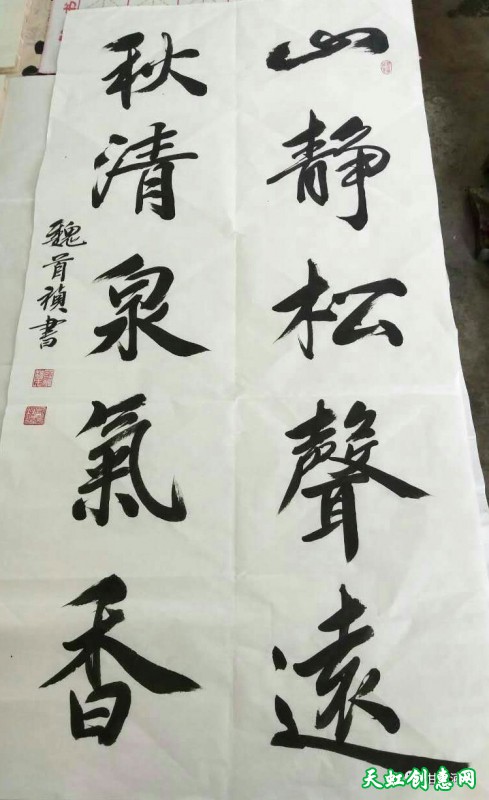 山靜松聲遠
秋清泉氣香
魏首禎書
天虹创意网